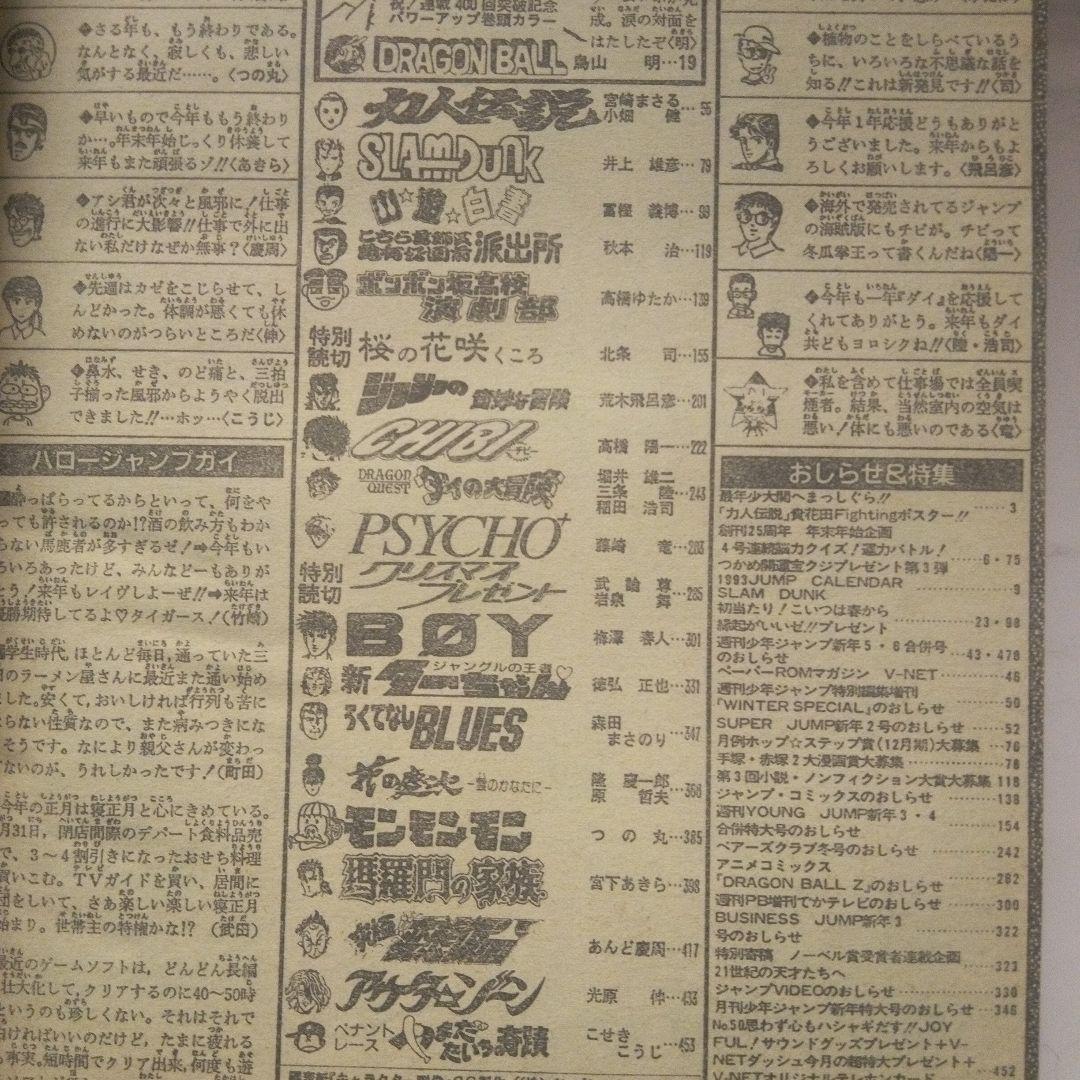 ◆さる年も、もう終わりである。
なんとなく、寂しくも、悲しい
気がする最近だ……。〈つの丸〉
◆早いもので今年ももう終わり
か…。年末年始じっくり休養して
来年もまた頑張るゾ!!〈あきら〉
◆アシ君が次々と風邪に!仕事
の進行に大影響!!仕事で外に出
ない私だけなぜか無事?〈慶周〉
◆先週はカゼをこじらせて、し
んどかった。体調が悪くても休
めないのがつらいところだ〈伸〉
◆鼻水、せき、のど痛と、三拍
子揃った風邪からようやく脱出
できました!!…ホッ…〈こうじ〉
ハロージャンプガイ
っぱらってるからといって，何をや
っても許されるのか!?酒の飲み方もわか
らない馬鹿者が多すぎるぜ!➡今年もい
ろいろあったけど，みんなどーもありが
とう!来年もレイヴしよーぜ!!➡来年は
優勝期待してるよ♡タイガース!(竹﨑)
学生時代，ほとんど毎日，通っていた三
のラーメン屋さんに最近また通い始め
ました。安くて，おいしければ行列も苦に
ならない性質なので，また病みつきにな
りそうです。なにより親父さんが変わっ
てないのが，うれしかったです!(町田)
今年の正月は寝正月と心にきめている。
月31日，閉店間際のデパート食料品売
で，3〜4割引きになったおせち料理
買いこむ。TVガイドを買い，居間に
団をしいて，さあ楽しい楽しい寝正月
始まり。世帯主の特権かな!? (武田)
最近のゲームソフトは，どんどん長編
壮大化して，クリアするのに40〜50時
というのも珍しくない。それはそれで
ければいいのだけど，たまに疲れる
事実。短時間でクリア出来，何度も遊
祝!連載400回突破記念
パワーアップ巻頭カラー
成。涙の対面を
はたしたぞ〈明〉
DRAGON BALL 鳥山 明…19
力人伝説 宮崎まさる 小畑 健…55
SLAM DUNK 井上 雄彦…79
幽☆遊☆白書 冨樫 義博…99
こちら葛飾区亀有公園前派出所 秋本 治…119
ボンボン坂高校演劇部 高橋ゆたか…139
特別読切 桜の花咲くころ 北条 司…155
ジョジョの奇妙な冒険 荒木飛呂彦…201
CHIBI チビー 高橋 陽一…222
DRAGON QUEST ダイの大冒険 堀井 雄二 三条 陸 稲田 浩司…243
PSYCHO+ 藤崎 竜…263
特別読切 クリスマスプレゼント 武論尊 岩泉 舞…285
BØY 梅澤 春人…301
新ジャングルの王者ターちゃん♡ 徳弘 正也…331
ろくでなしBLUES 森田まさのり…347
花の慶次 -雲のかなたに- 隆 慶一郎 原 哲夫…368
モンモンモン つの丸…385
瑪羅門の家族 宮下あきら…398
あんど慶周…417
アウターゾーン 光原 伸…433
ペナントレース やまだたいちの奇蹟 こせきこうじ…453
◆植物のことをしらべているう
ちに、いろいろな不思議な話を
知る!!これは新発見です!!〈司〉
◆今年1年応援どうもありがと
うございました。来年からもよ
ろしくお願いします。〈飛呂彦〉
◆海外で発売されてるジャンプ
の海賊版にもチビが。チビって
冬瓜拳王って書くんだね〈陽一〉
◆今年も一年『ダイ』を応援して
くれてありがとう。来年もダイ
共どもヨロシクね!!〈陸・浩司〉
◆私を含めて仕事場では全員喫
煙者。結果、当然室内の空気は
悪い!体にも悪いのである〈竜〉
おしらせ&特集
最年少大関へまっしぐら!!
「力人伝説」貴花田Fightingポスター!!……3
創刊25周年 年末年始企画
4号連続脳力クイズ!運力バトル!
つかめ開運宝クジプレゼント第3弾……6・75
1993JUMP CALENDAR
SLAM DUNK……9
初当たり!こいつは春から
縁起がいいぜ!!プレゼント……23・98
週刊少年ジャンプ新年5・6合併号
のおしらせ……43・478
ペーパーROMマガジン V-NET……46
週刊少年ジャンプ特別編集増刊
「WINTER SPECIAL」のおしらせ……50
SUPER JUMP新年2号のおしらせ……52
月例ホップ☆ステップ賞(12月期)大募集…76
手塚・赤塚2大漫画賞大募集……78
第3回小説・ノンフィクション大賞大募集 118
ジャンプ・コミックスのおしらせ……138
週刊YOUNG JUMP新年3・4
合併特大号のおしらせ……154
ベアーズクラブ冬号のおしらせ……242
アニメコミックス
「DRAGON BALL Z」のおしらせ……262
週刊PB増刊でかテレビのおしらせ……300
BUSINESS JUMP新年3
号のおしらせ……322
特別寄稿 ノーベル賞受賞者連載企画
21世紀の天才たちへ……323
ジャンプVIDEOのおしらせ……330
月刊少年ジャンプ新年特大号のおしらせ…346
No.50思わず心もハシャギだす!!JOY
FUL!サウンドグッズプレゼント+V-
NETダッシュ今月の超特大プレゼント+
V-NETオリジナルテレホンカード……452